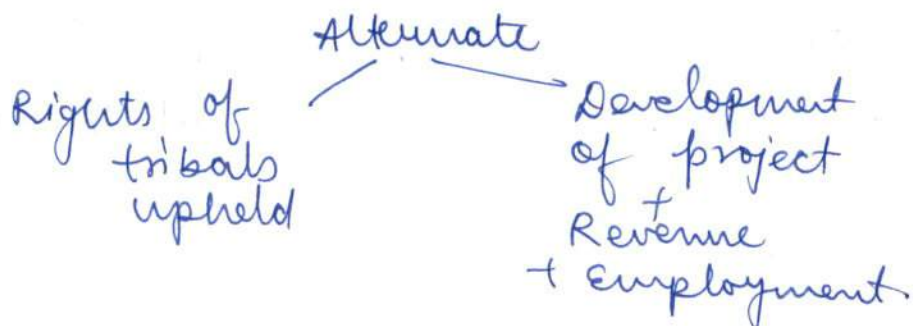 Alternate
Rights of
tribals
upheld
Development
of project
+
Revenue
+ Employment.